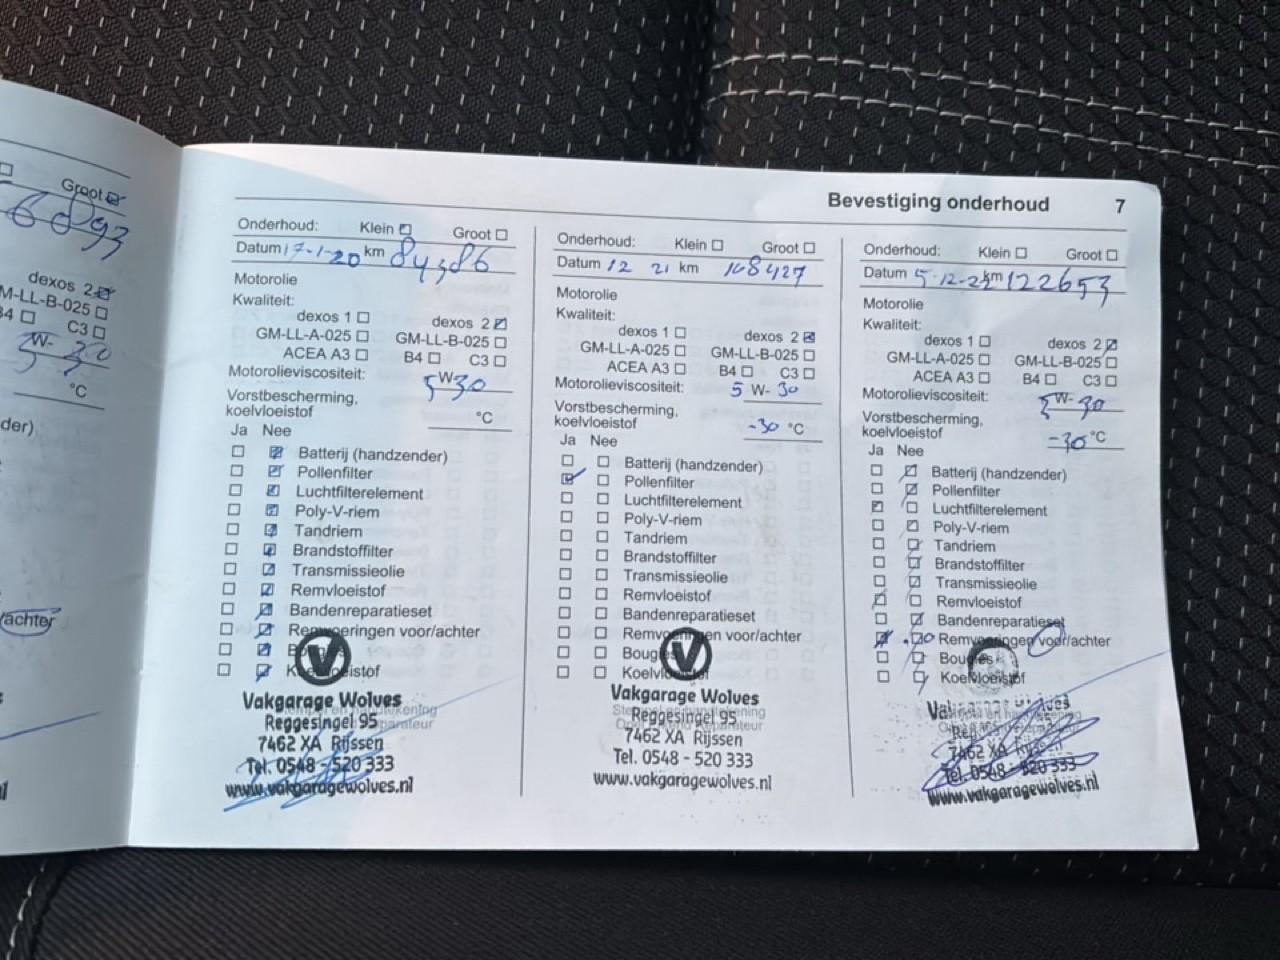 Groot
6893
dexos 2
M-LL-B-025
B4 C3
5W-30
°C
der)
achter
Bevestiging onderhoud 7
Onderhoud: Klein Groot
Datum 17-1-20 km 84386
Motorolie
Kwaliteit:
dexos 1 dexos 2
GM-LL-A-025 GM-LL-B-025
ACEA A3 B4 C3
Motorolieviscositeit: 5W30
Vorstbescherming,
koelvloeistof °C
Ja Nee
Batterij (handzender)
Pollenfilter
Luchtfilterelement
Poly-V-riem
Tandriem
Brandstoffilter
Transmissieolie
Remvloeistof
Bandenreparatieset
Remvoeringen voor/achter
Bougies
Koelvloeistof
Vakgarage Wolves
Reggesingel 95
7462 XA Rijssen
Tel. 0548 - 520 333
www.vakgaragewolves.nl
Onderhoud: Klein Groot
Datum 12 21 km 108427
Motorolie
Kwaliteit:
dexos 1 dexos 2
GM-LL-A-025 GM-LL-B-025
ACEA A3 B4 C3
Motorolieviscositeit: 5 W- 30
Vorstbescherming,
koelvloeistof -30 °C
Ja Nee
Batterij (handzender)
Pollenfilter
Luchtfilterelement
Poly-V-riem
Tandriem
Brandstoffilter
Transmissieolie
Remvloeistof
Bandenreparatieset
Remvoeringen voor/achter
Bougies
Koelvloeistof
Vakgarage Wolves
Reggesingel 95
7462 XA Rijssen
Tel. 0548 - 520 333
www.vakgaragewolves.nl
Onderhoud: Klein Groot
Datum 5-12-22 km 122653
Motorolie
Kwaliteit:
dexos 1 dexos 2
GM-LL-A-025 GM-LL-B-025
ACEA A3 B4 C3
Motorolieviscositeit: 5W-30
Vorstbescherming,
koelvloeistof -30 °C
Ja Nee
Batterij (handzender)
Pollenfilter
Luchtfilterelement
Poly-V-riem
Tandriem
Brandstoffilter
Transmissieolie
Remvloeistof
Bandenreparatieset
Remvoeringen voor/achter
Bougies
Koelvloeistof
7462 XA Rijssen
Tel. 0548 - 520 333
www.vakgaragewolves.nl